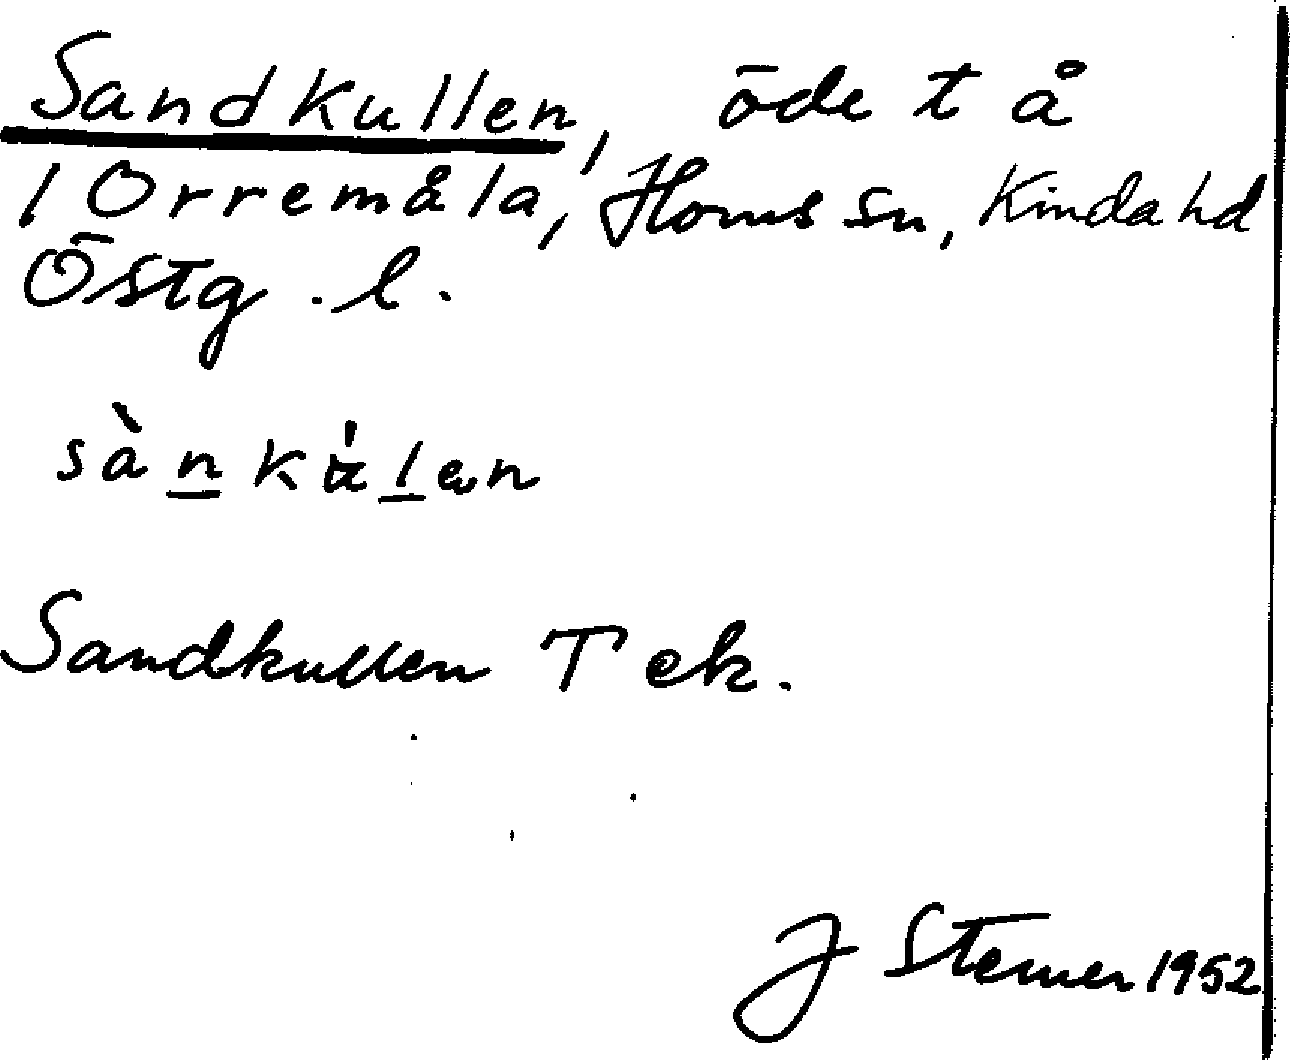 Sandkullen, öde t å
1 Orremåla, Horns sn, Kinda hd
Östg. l.
sànkúlen
Sandkullen T ek.
J Sterner 1952